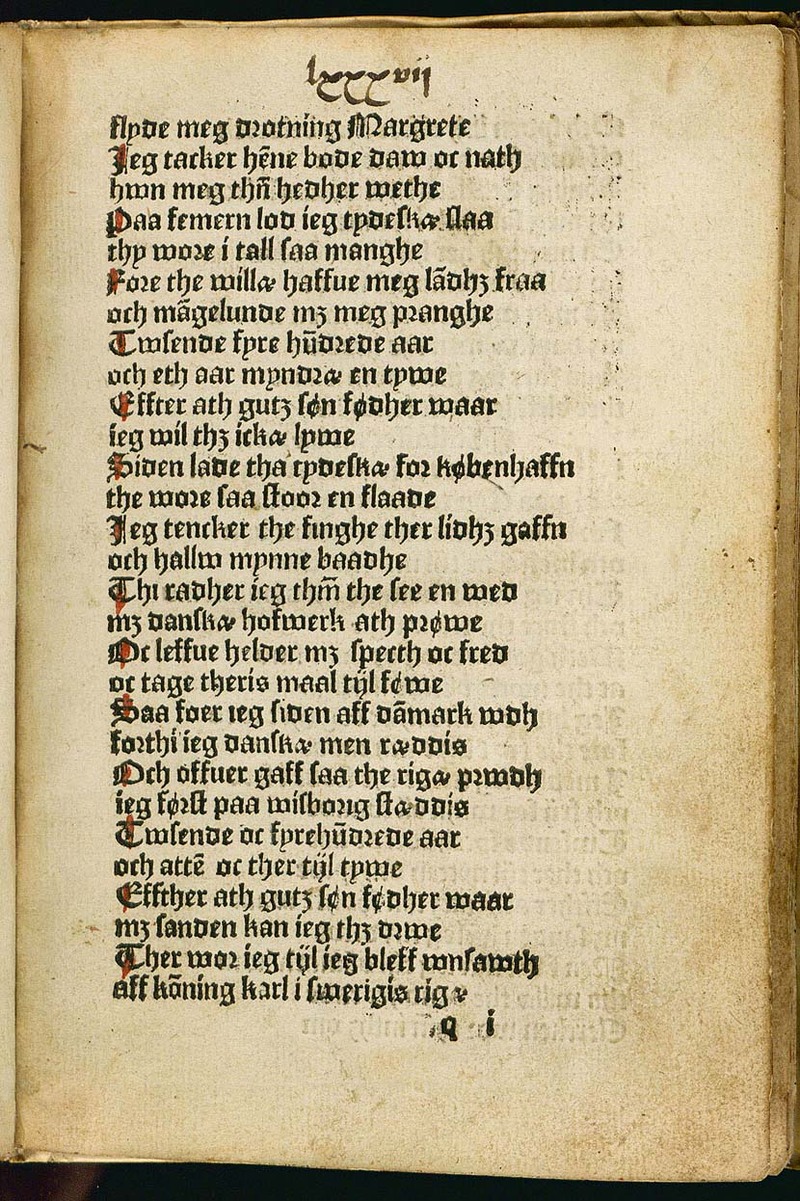 lxxxvij
flyde meg drotning Margrete
Jeg tacker hēne bode daw oc nath
hwn meg thn̄ hedher wethe
Paa femern lod ieg tydeskæ slaa
thy wore i tall saa manghe
Fore the willæ haffue meg lādhꝫ fraa
och māgelunde mꝫ meg pranghe
Twsende fyre hūdrede aar
och eth aar myndræ en tywe
Effter ath gutꝫ søn fødher waar
ieg wil thꝫ ickæ lywe
Siden lade tha tydeskæ for københaffn
the wore saa stoor en flaade
Jeg tencker the finghe ther lidhꝫ gaffn
och hallw mynne baadhe
Thi radher ieg thm̄ the see en wed
mꝫ danskæ hofwerk ath prøwe
Oc leffue helder mꝫ specth oc fred
oc tage theris maal tijl føwe
Saa foer ieg siden aff dāmark wdh
forthi ieg danskæ men ræddis
Och offuer gaff saa the rigæ prwdh
ieg først paa wisborig stæddis
Twsende oc fyrehūdrede aar
och attē oc ther tijl tywe
Effther ath gutꝫ søn fødher waar
mꝫ sanden kan ieg thꝫ drwe
Ther wor ieg tijl ieg bleff wnsawth
aff kōning karl i swerigis rigæ
q i